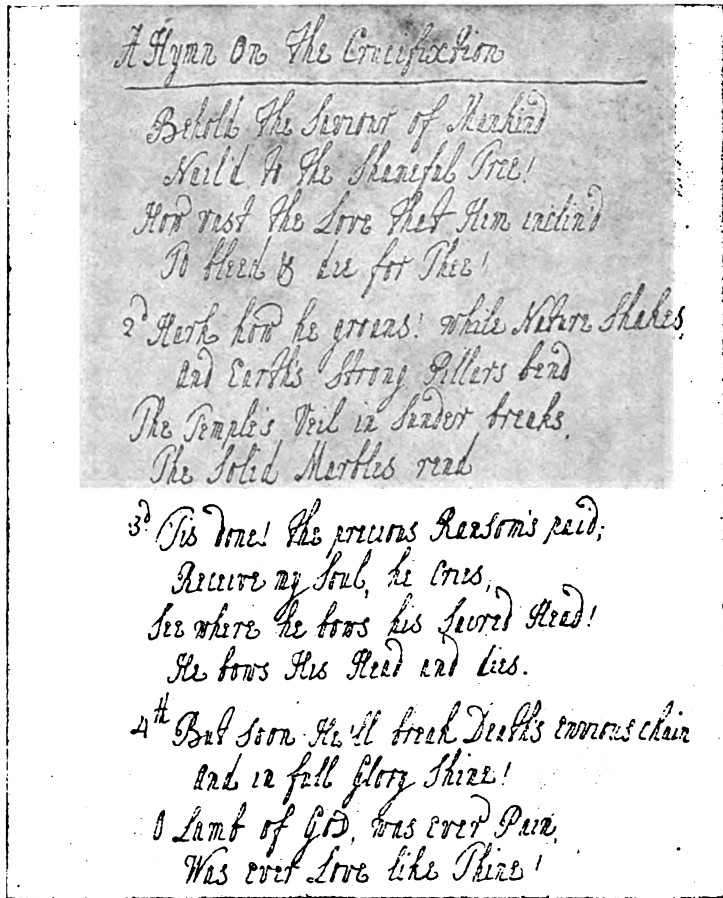 A Hymn on the Crucifixtion
Behold the Saviour of Mankind
Nail'd to the Shameful Tree!
How vast the Love that Him inclin'd
To bleed & die for Thee!
2d Hark how he groans! while Nature Shakes,
And Earth's Strong Pillars bend
The Temple's Veil in Sunder breaks,
The Solid Marbles rend
3d 'Tis done! the precious Ransom's paid;
Receive my Soul, he Cries,
See where he bows his Sacred Head!
He bows His Head and dies.
4th But soon He'll break Death's envious chain
And in full Glory Shine!
O Lamb of God, was ever Pain,
Was ever Love like Thine!